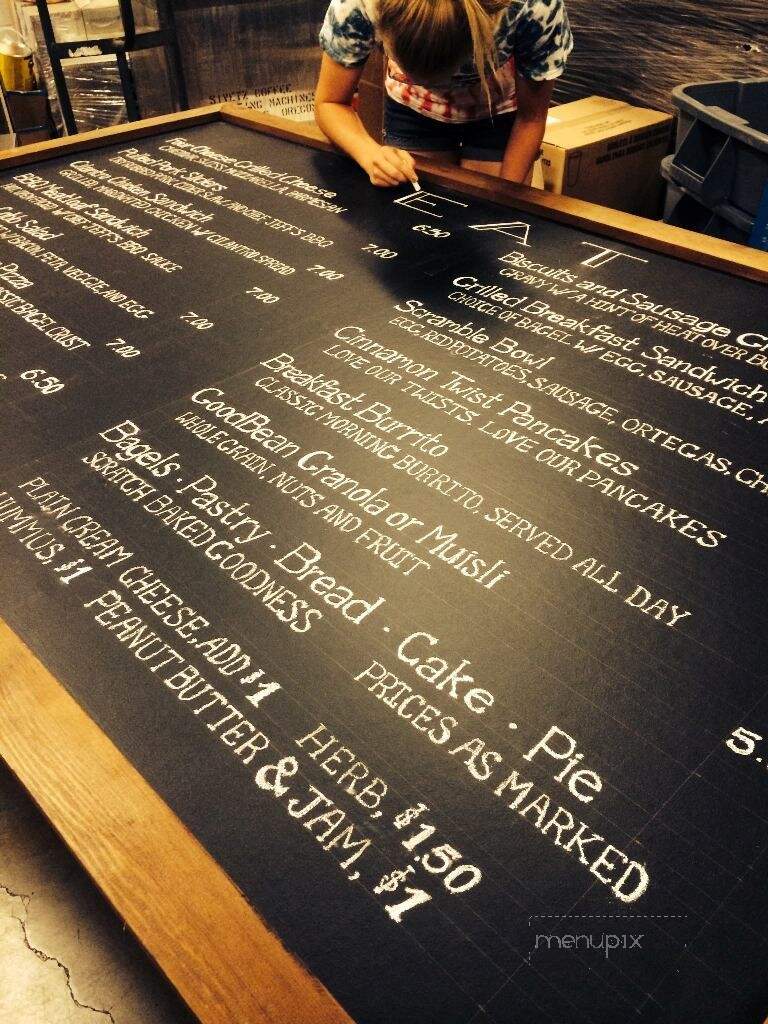 SIVETZ COFFEE
ING MACHINES
OREGO
EAT
Four Cheese Grilled Cheese
MOZZARELLA, PARMESAN
6.50
Pulled Pork Sliders
JEFF'S BBQ
7.00
Sandwich
GRILLED MARINATED CHICKEN W/ CILANTRO SPREAD
7.00
BBQ Meatloaf Sandwich
JEFF'S BBQ SAUCE
7.00
Salad
FETA, VEGGIE, AND EGG
7.00
Pizza
BAGEL CRUST
7.00
6.50
Biscuits and Sausage
GRAVY W/ A HINT OF HEAT OVER
Grilled Breakfast Sandwich
CHOICE OF BAGEL W/ EGG, SAUSAGE,
Scramble Bowl
EGG, RED POTATOES, SAUSAGE, ORTEGAS,
Cinnamon Twist Pancakes
LOVE OUR TWISTS. LOVE OUR PANCAKES
Breakfast Burrito
CLASSIC MORNING BURRITO, SERVED ALL DAY
GoodBean Granola or Muisli
WHOLE GRAIN, NUTS AND FRUIT
5.
Bagels · Pastry · Bread · Cake · Pie
SCRATCH BAKED GOODNESS PRICES AS MARKED
PLAIN CREAM CHEESE, ADD $1 HERB, $1.50
HUMMUS, $1 PEANUT BUTTER & JAM, $1
menupix